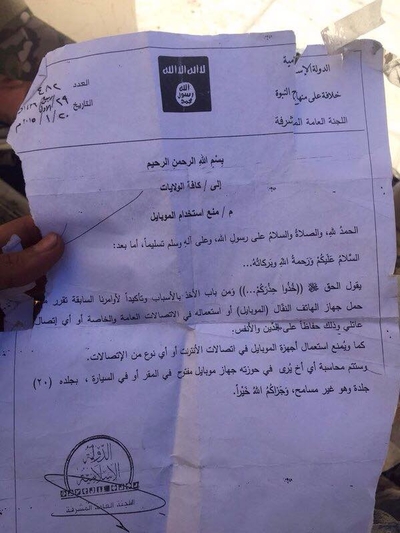 الدولة الإسـ مية
خلافة على منهاج النبوة
اللجنة العامة المشرفة
لا اله الا الله
الله
رسول
محمد
العدد ٤٨٢
التاريخ ٢٩/
٢٠/١/٢٠١٥ م
بِسْمِ اللهِ الرحمنِ الرحيمِ
إلى / كافة الولايات
م / منع استخدام الموبايل
الحمدُ للهِ، والصلاةُ والسلامُ على رسولِ اللهِ، وعلى آلهِ وسلم تسليماً، أما بعد:
السَّلامُ عَلَيْكُمْ وَرَحمةُ اللهِ وَبَركاتُهُ...
يقول الحق ((خُذُوا حِذْرَكُمْ...)) ومن باب الأخذ بالأسباب وتأكيداً لأوامرنا السابقة تقرر
حمل جهاز الهاتف النقال (الموبايل) أو استعماله في الاتصالات العامة والخاصة أو أي إتصال
عائلي وذلك حفاظاً على الدين والأنفس.
كما ويُمنع إستعمال أجهزة الموبايل في اتصالات الأنترنت أو أي نوع من الإتصالات.
وستتم محاسبة أي أخ يُرى في حوزته جهاز موبايل مفتوح في المقر أو في السيارة ، بجلده (٢٠)
جلدة وهو غير مسامح، وَجَزاكُمُ اللهُ خَيْراً.
الدولة
الإسلامية
اللجنة العامة المشرفة